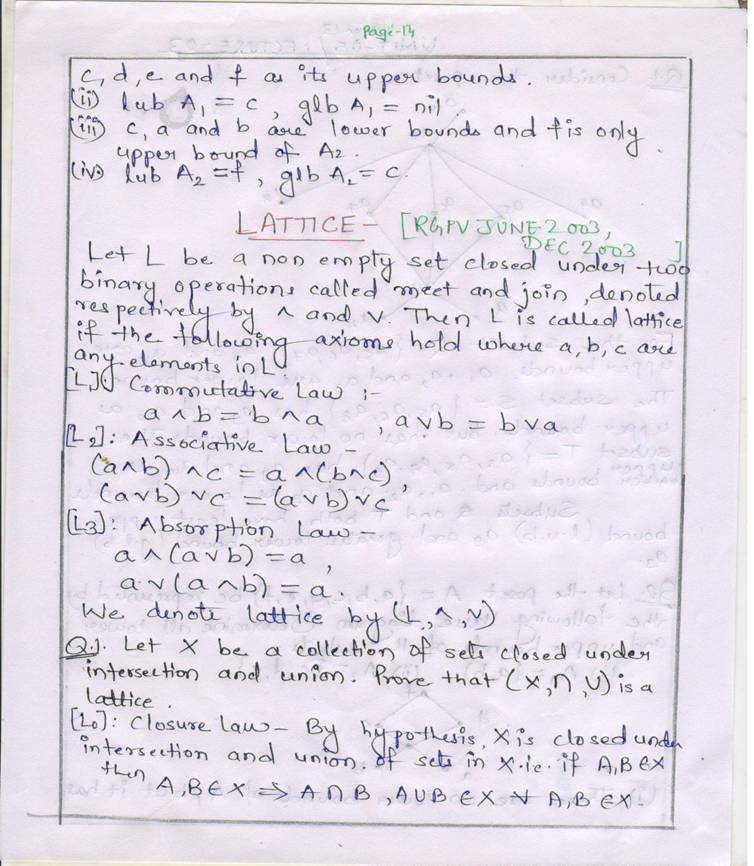 Page-14
c, d, e and f as its upper bounds.
(ii) lub A₁ = c , glb A₁ = nil.
(iii) c, a and b are lower bounds and f is only
upper bound of A₂.
(iv) lub A₂ = f , glb A₂ = c.
LATTICE – [RGPV JUNE-2003,
DEC 2003 ]
Let L be a non empty set closed under two
binary operations called meet and join, denoted
respectively by ∧ and ∨. Then L is called lattice
if the following axioms hold where a, b, c are
any elements in L.
[L₁]: Commutative Law :-
a ∧ b = b ∧ a , a ∨ b = b ∨ a
[L₂]: Associative Law –
(a ∧ b) ∧ c = a ∧ (b ∧ c) ,
(a ∨ b) ∨ c = (a ∨ b) ∨ c
[L3]: Absorption Law –
a ∧ (a ∨ b) = a ,
a ∨ (a ∧ b) = a .
We denote lattice by (L, ∧, ∨)
Q.1. Let X be a collection of sets closed under
intersection and union. Prove that (X, ∩, ∪) is a
lattice.
[L₀]: Closure law – By hypothesis, X is closed under
intersection and union of sets in X. i.e. if A, B ∈ X
then A, B ∈ X ⇒ A ∩ B , A ∪ B ∈ X ∀ A, B ∈ X.